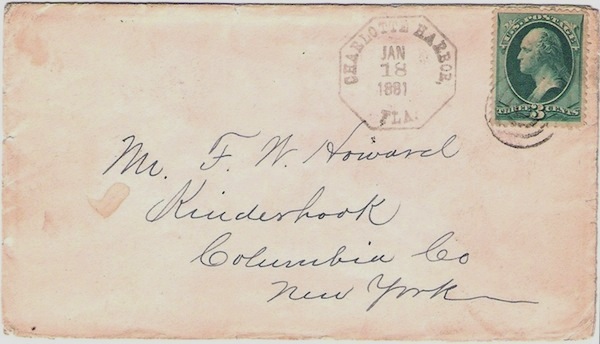 CHARLOTTE HARBOR,
JAN
18
1881
FLA.
U.S. POSTAGE
THREE 3 CENTS
Mr. F. W. Howard
Kinderhook
Columbia Co
New York